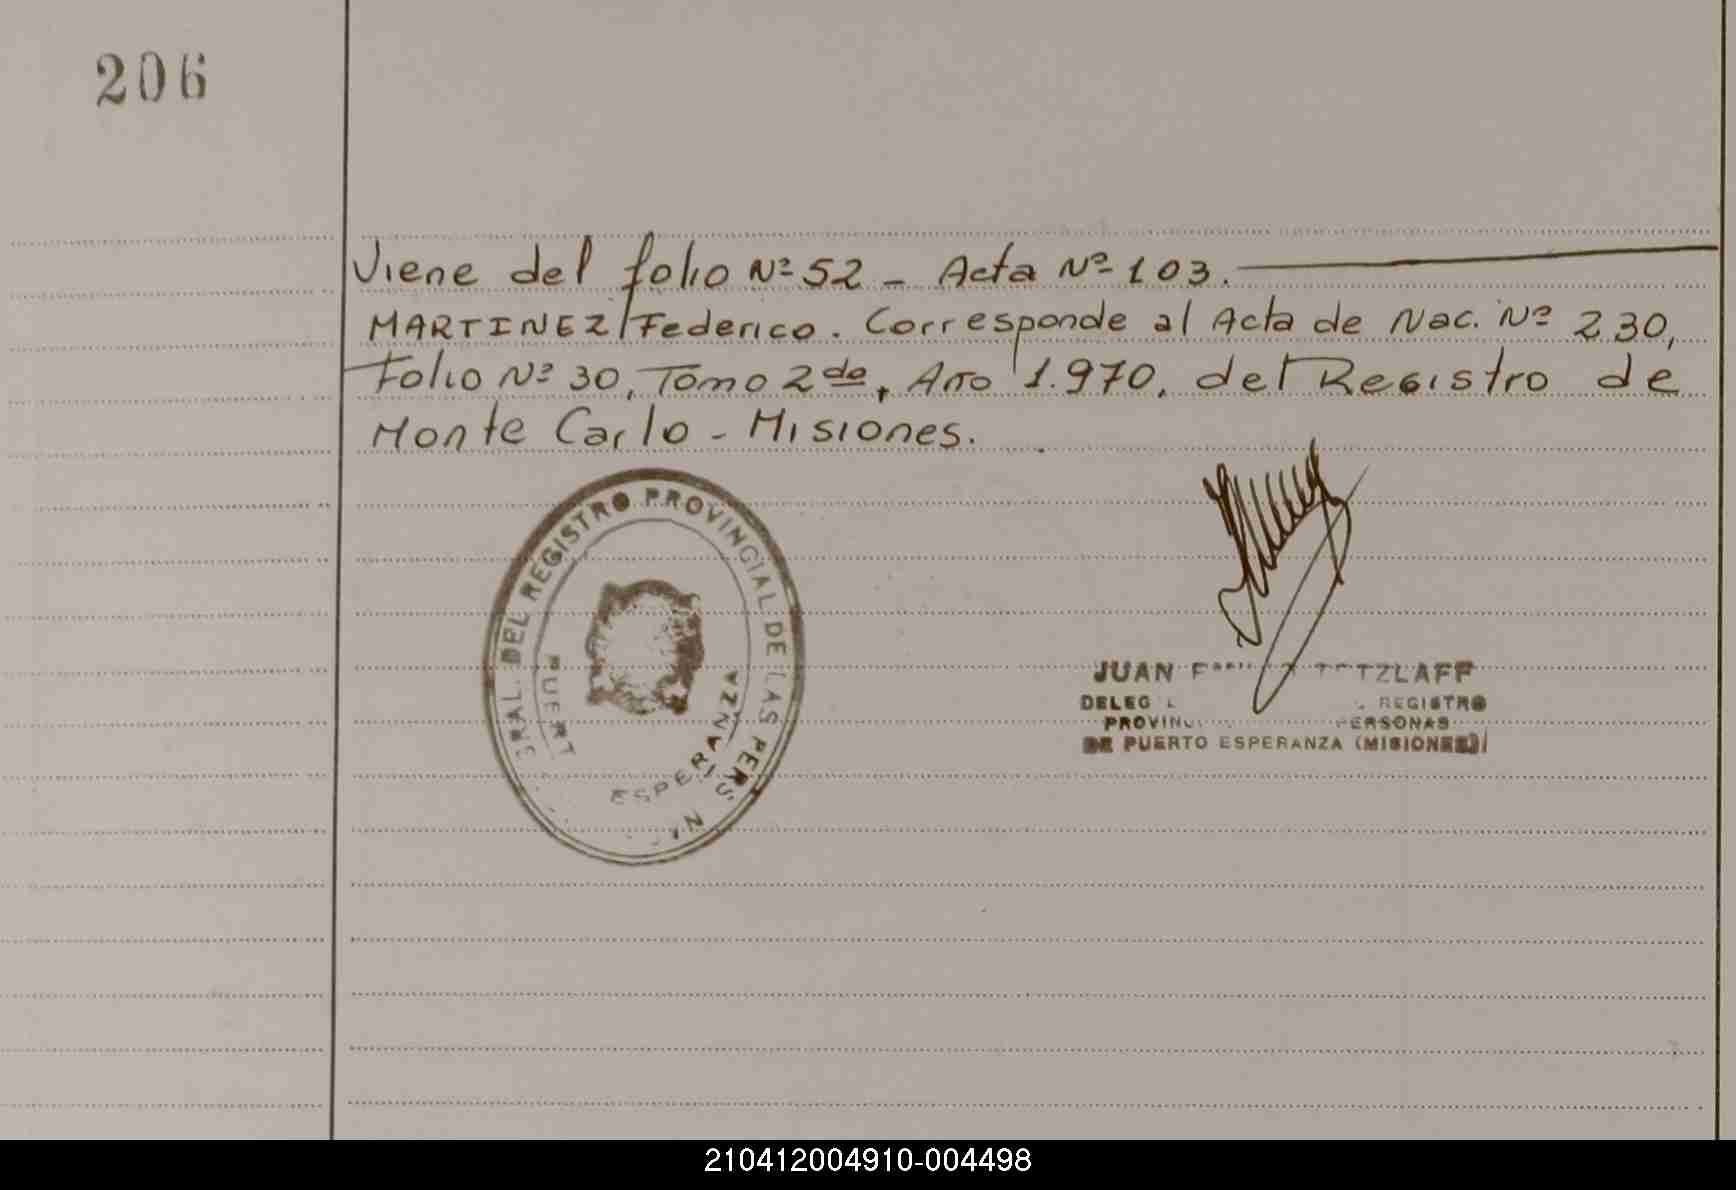 206
Viene del folio Nº 52 - Acta Nº 103.
MARTINEZ/Federico. Corresponde al Acta de Nac. Nº 230,
Folio Nº 30, Tomo 2do, Año 1.970, del Registro de
Monte Carlo - Misiones.
DEL REGISTRO PROVINCIAL DE LAS
ESPERANZA
JUAN
REGISTRO
DE PUERTO ESPERANZA (MISIONES)
210412004910-004498